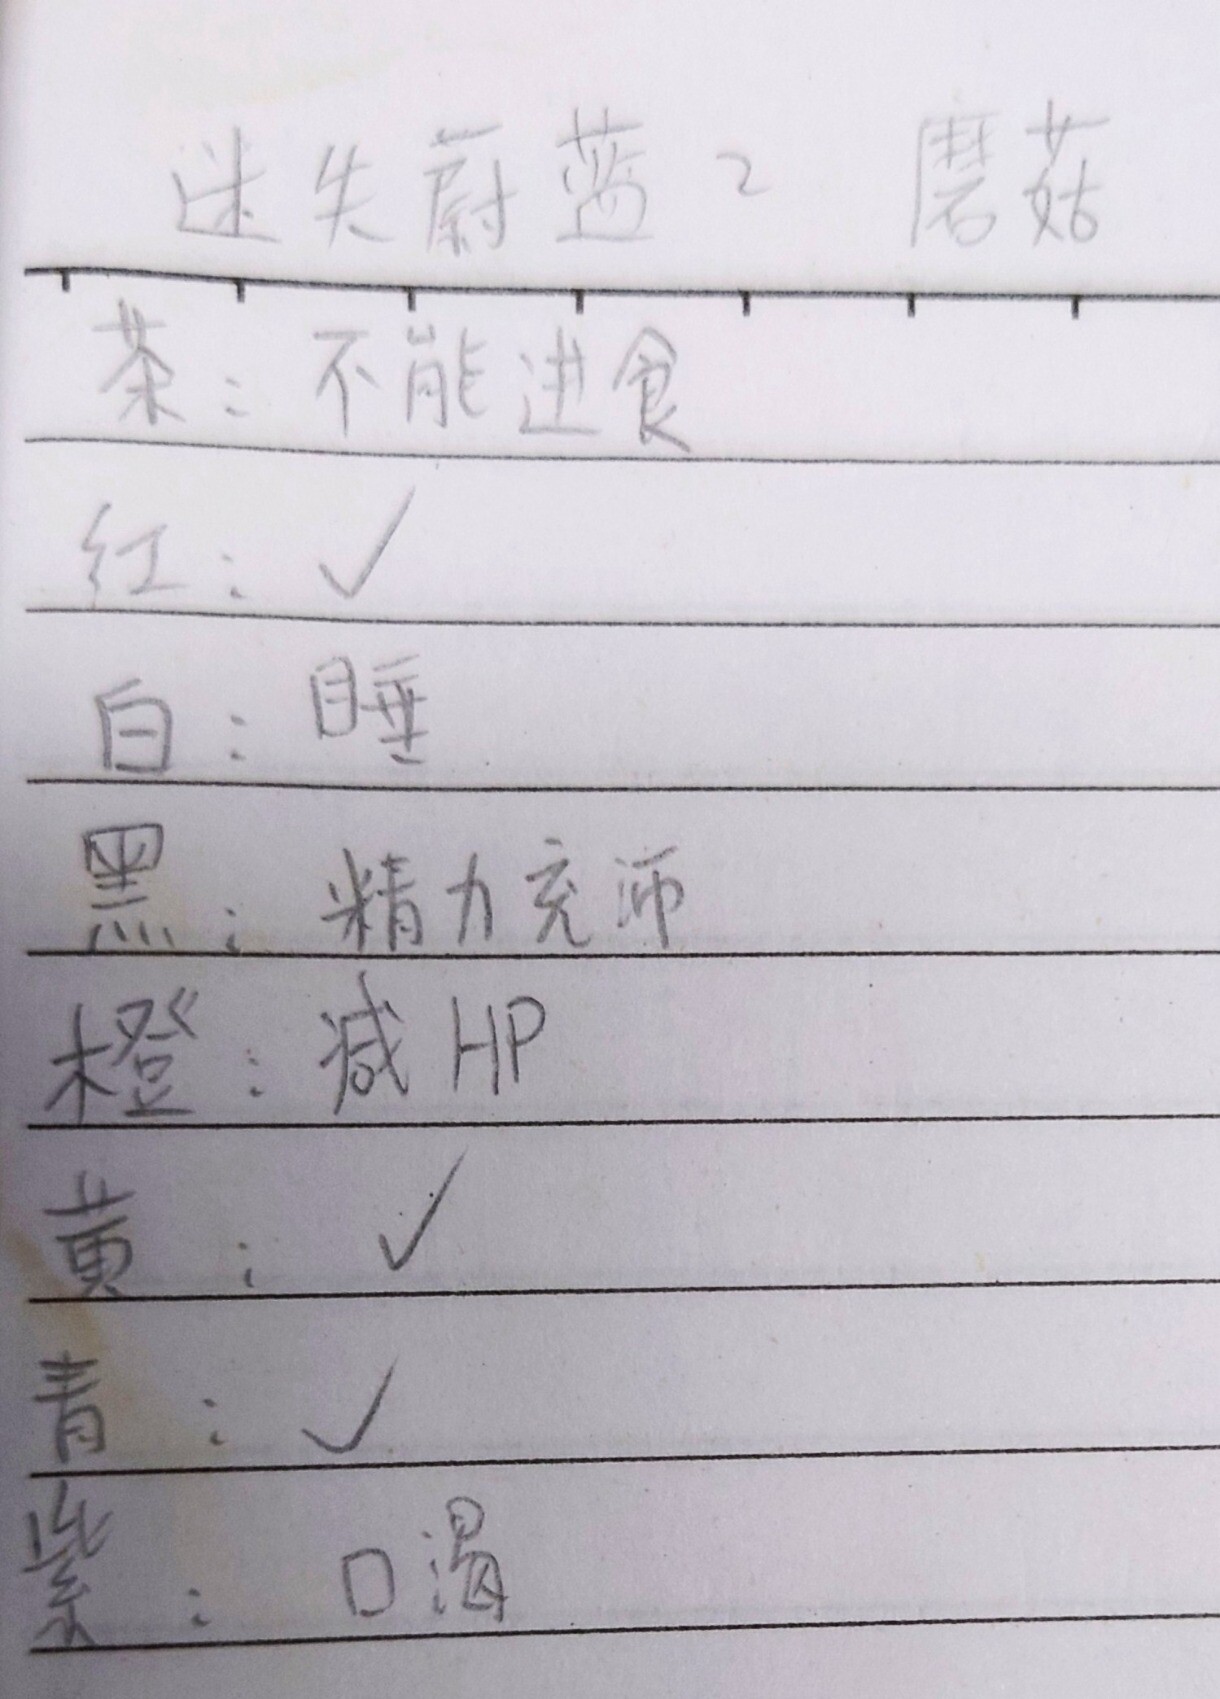 迷失蔚蓝2 磨菇
茶：不能进食
红：✓
白：睡
黑：精力充沛
橙：减HP
黄：✓
青：✓
紫：口渴